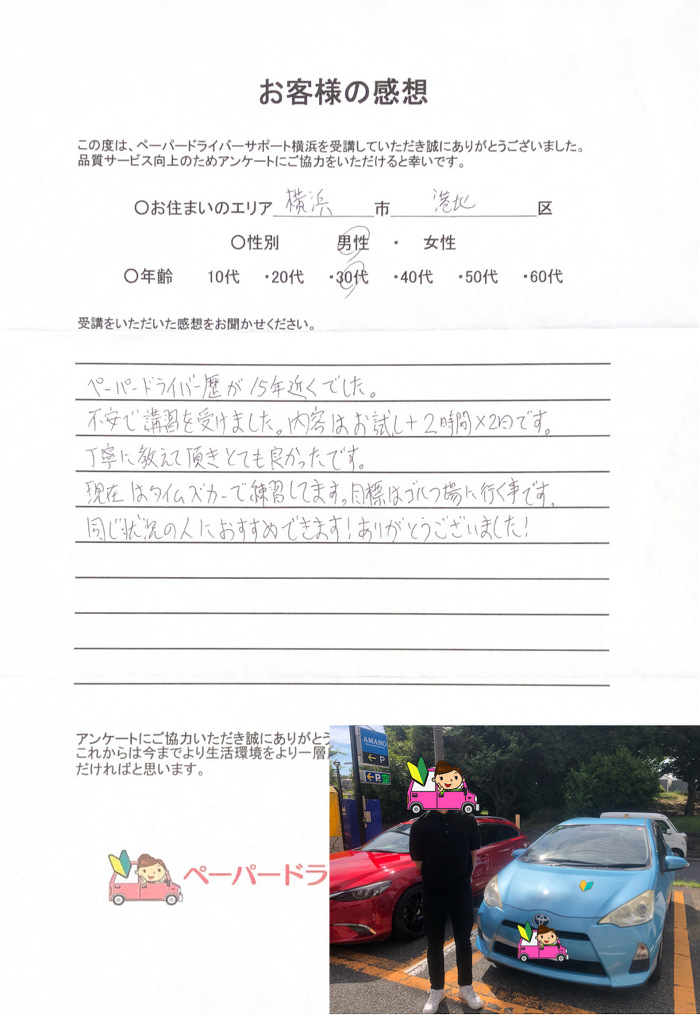 お客様の感想
この度は、ペーパードライバーサポート横浜を受講していただき誠にありがとうございました。
品質サービス向上のためアンケートにご協力をいただけると幸いです。
〇お住まいのエリア 横浜 市 港北 区
〇性別 男性 ・ 女性
〇年齢 10代 ・20代 ・30代 ・40代 ・50代 ・60代
受講をいただいた感想をお聞かせください。
ペーパードライバー歴が15年近くでした。
不安で講習を受けました。内容はお試し+2時間×2日です。
丁寧に教えて頂きとても良かったです。
現在はタイムズカーで練習してます。目標はゴルフ場に行く事です。
同じ状況の人におすすめできます!ありがとうございました!
アンケートにご協力いただき誠にありがとう
これからは今までより生活環境をより一層
だければと思います。
ペーパードラ
AMANO
P
P